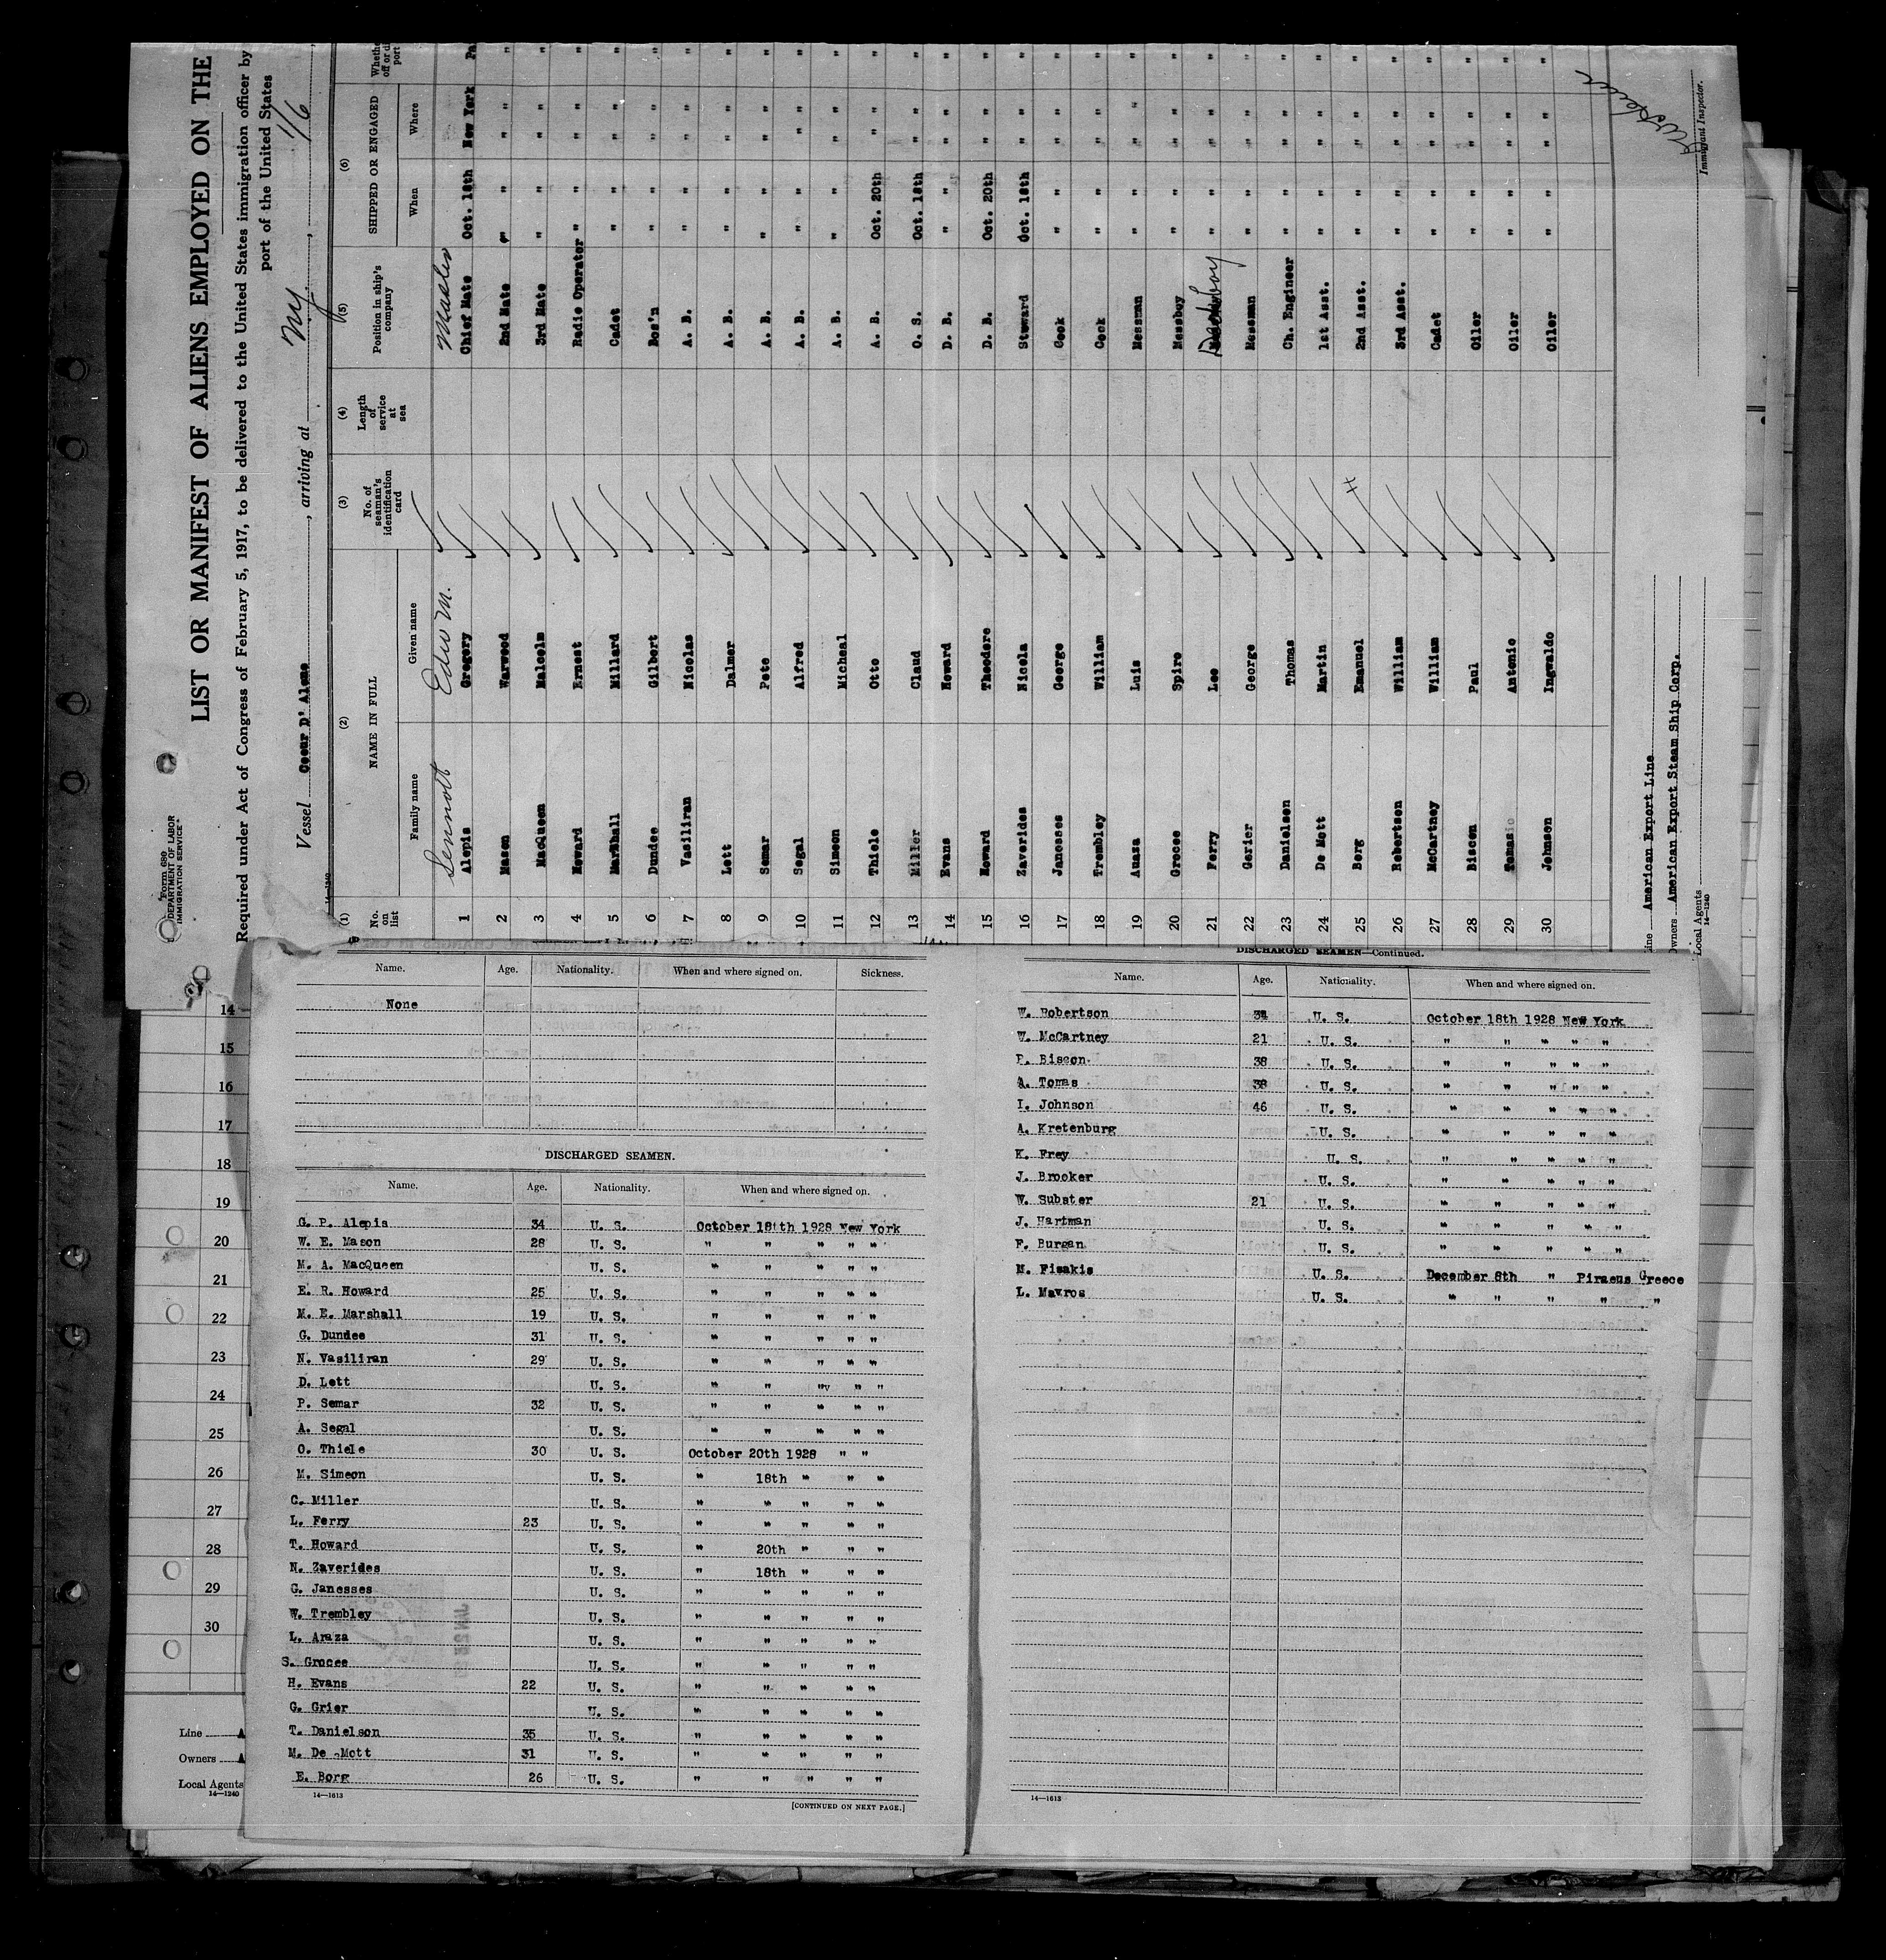 Form 680
DEPARTMENT OF LABOR
IMMIGRATION SERVICE
LIST OR MANIFEST OF ALIENS EMPLOYED ON THE
Required under Act of Congress of February 5, 1917, to be delivered to the United States immigration officer by
port of the United States
Vessel Coeur D' Alene, arriving at NY, 1/6
14—1240
(1) (2) (3) (4) (5) (6)
No. on list NAME IN FULL No. of seaman's identification card Length of service at sea Position in ship's company SHIPPED OR ENGAGED
Family name Given name When Where
Sennott Edw M. Master
1 Alepis Gregory Chief Mate Oct. 18th New York
2 Mason Warwood 2nd Mate " " " "
3 MacQueen Malcolm 3rd Mate " " " "
4 Howard Ernest Radio Operator " " " "
5 Marshall Millard Cadet " " " "
6 Dundee Gilbert Bos'n " " " "
7 Vasiliran Nicolas A. B. " " " "
8 Lott Dalmer A. B. " " " "
9 Semar Pete A. B. " " " "
10 Segal Alfred A. B. " " " "
11 Simeon Micheal A. B. " " " "
12 Thiele Otto A. B. Oct. 20th " "
13 Miller Claud O. S. Oct. 18th " "
14 Evans Howard D. B. " " " "
15 Howard Theodore D. B. Oct. 20th " "
16 Zaverides Nicola Steward Oct. 18th " "
17 Janosses George Cook " " " "
18 Trembley William Cook " " " "
19 Auaza Luis Messman " " " "
20 Grocee Spiro Messboy " " " "
21 Ferry Leo Deckboy " " " "
22 Gerier George Messman " " " "
23 Danielson Thomas Ch. Engineer " " " "
24 De Mott Martin 1st Asst. " " " "
25 Borg Emanuel 2nd Asst. " " " "
26 Robertson William 3rd Asst. " " " "
27 McCartney William Cadet " " " "
28 Biscon Paul Oiler " " " "
29 Tomasio Antonio Oiler " " " "
30 Johnson Ingwaldo Oiler " " " "
Line American Export Line
Owners American Export Steam Ship Corp.
Local Agents
14—1240
Immigrant Inspector.
14
15
16
17
18
19
20
21
22
23
24
25
26
27
28
29
30
Line
Owners
Local Agents
14—1240
Name. Age. Nationality. When and where signed on. Sickness.
None
DISCHARGED SEAMEN.
Name. Age. Nationality. When and where signed on.
G. P. Alepis 34 U. S. October 18th 1928 New York
W. E. Mason 28 U. S. " " " " "
M. A. MacQueen U. S. " " " " "
E. R. Howard 25 U. S. " " " " "
M. E. Marshall 19 U. S. " " " " "
G. Dundee 31 U. S. " " " " "
N. Vasiliran 29 U. S. " " " " "
D. Lott U. S. " " " " "
P. Semar 32 U. S. " " " " "
A. Segal U. S. " " " " "
O. Thiele 30 U. S. October 20th 1928 " "
M. Simeon U. S. " 18th " " "
C. Miller U. S. " " " " "
L. Ferry 23 U. S. " " " " "
T. Howard U. S. " 20th " " "
N. Zaverides U. S. " 18th " " "
G. Janosses U. S. " " " " "
W. Trembley U. S. " " " " "
L. Araza U. S. " " " " "
S. Grocee U. S. " " " " "
H. Evans 22 U. S. " " " " "
G. Grier U. S. " " " " "
T. Danielson 35 U. S. " " " " "
M. De Mott 31 U. S. " " " " "
E. Borg 26 U. S. " " " " "
14—1613
[CONTINUED ON NEXT PAGE.]
DISCHARGED SEAMEN—Continued.
Name. Age. Nationality. When and where signed on.
W. Robertson 34 U. S. October 18th 1928 New York
W. McCartney 21 U. S. " " " " "
P. Biscon 38 U. S. " " " " "
A. Tomas 38 U. S. " " " " "
I. Johnson 46 U. S. " " " " "
A. Kretenburg U. S. " " " " "
K. Frey U. S. " " " " "
J. Brooker U. S. " " " " "
W. Subster 21 U. S. " " " " "
J. Hartman U. S. " " " " "
F. Burgan U. S. " " " " "
N. Fisakis U. S. December 8th " Piraeus Greece
L. Mavros U. S. " " " " "
14—1613